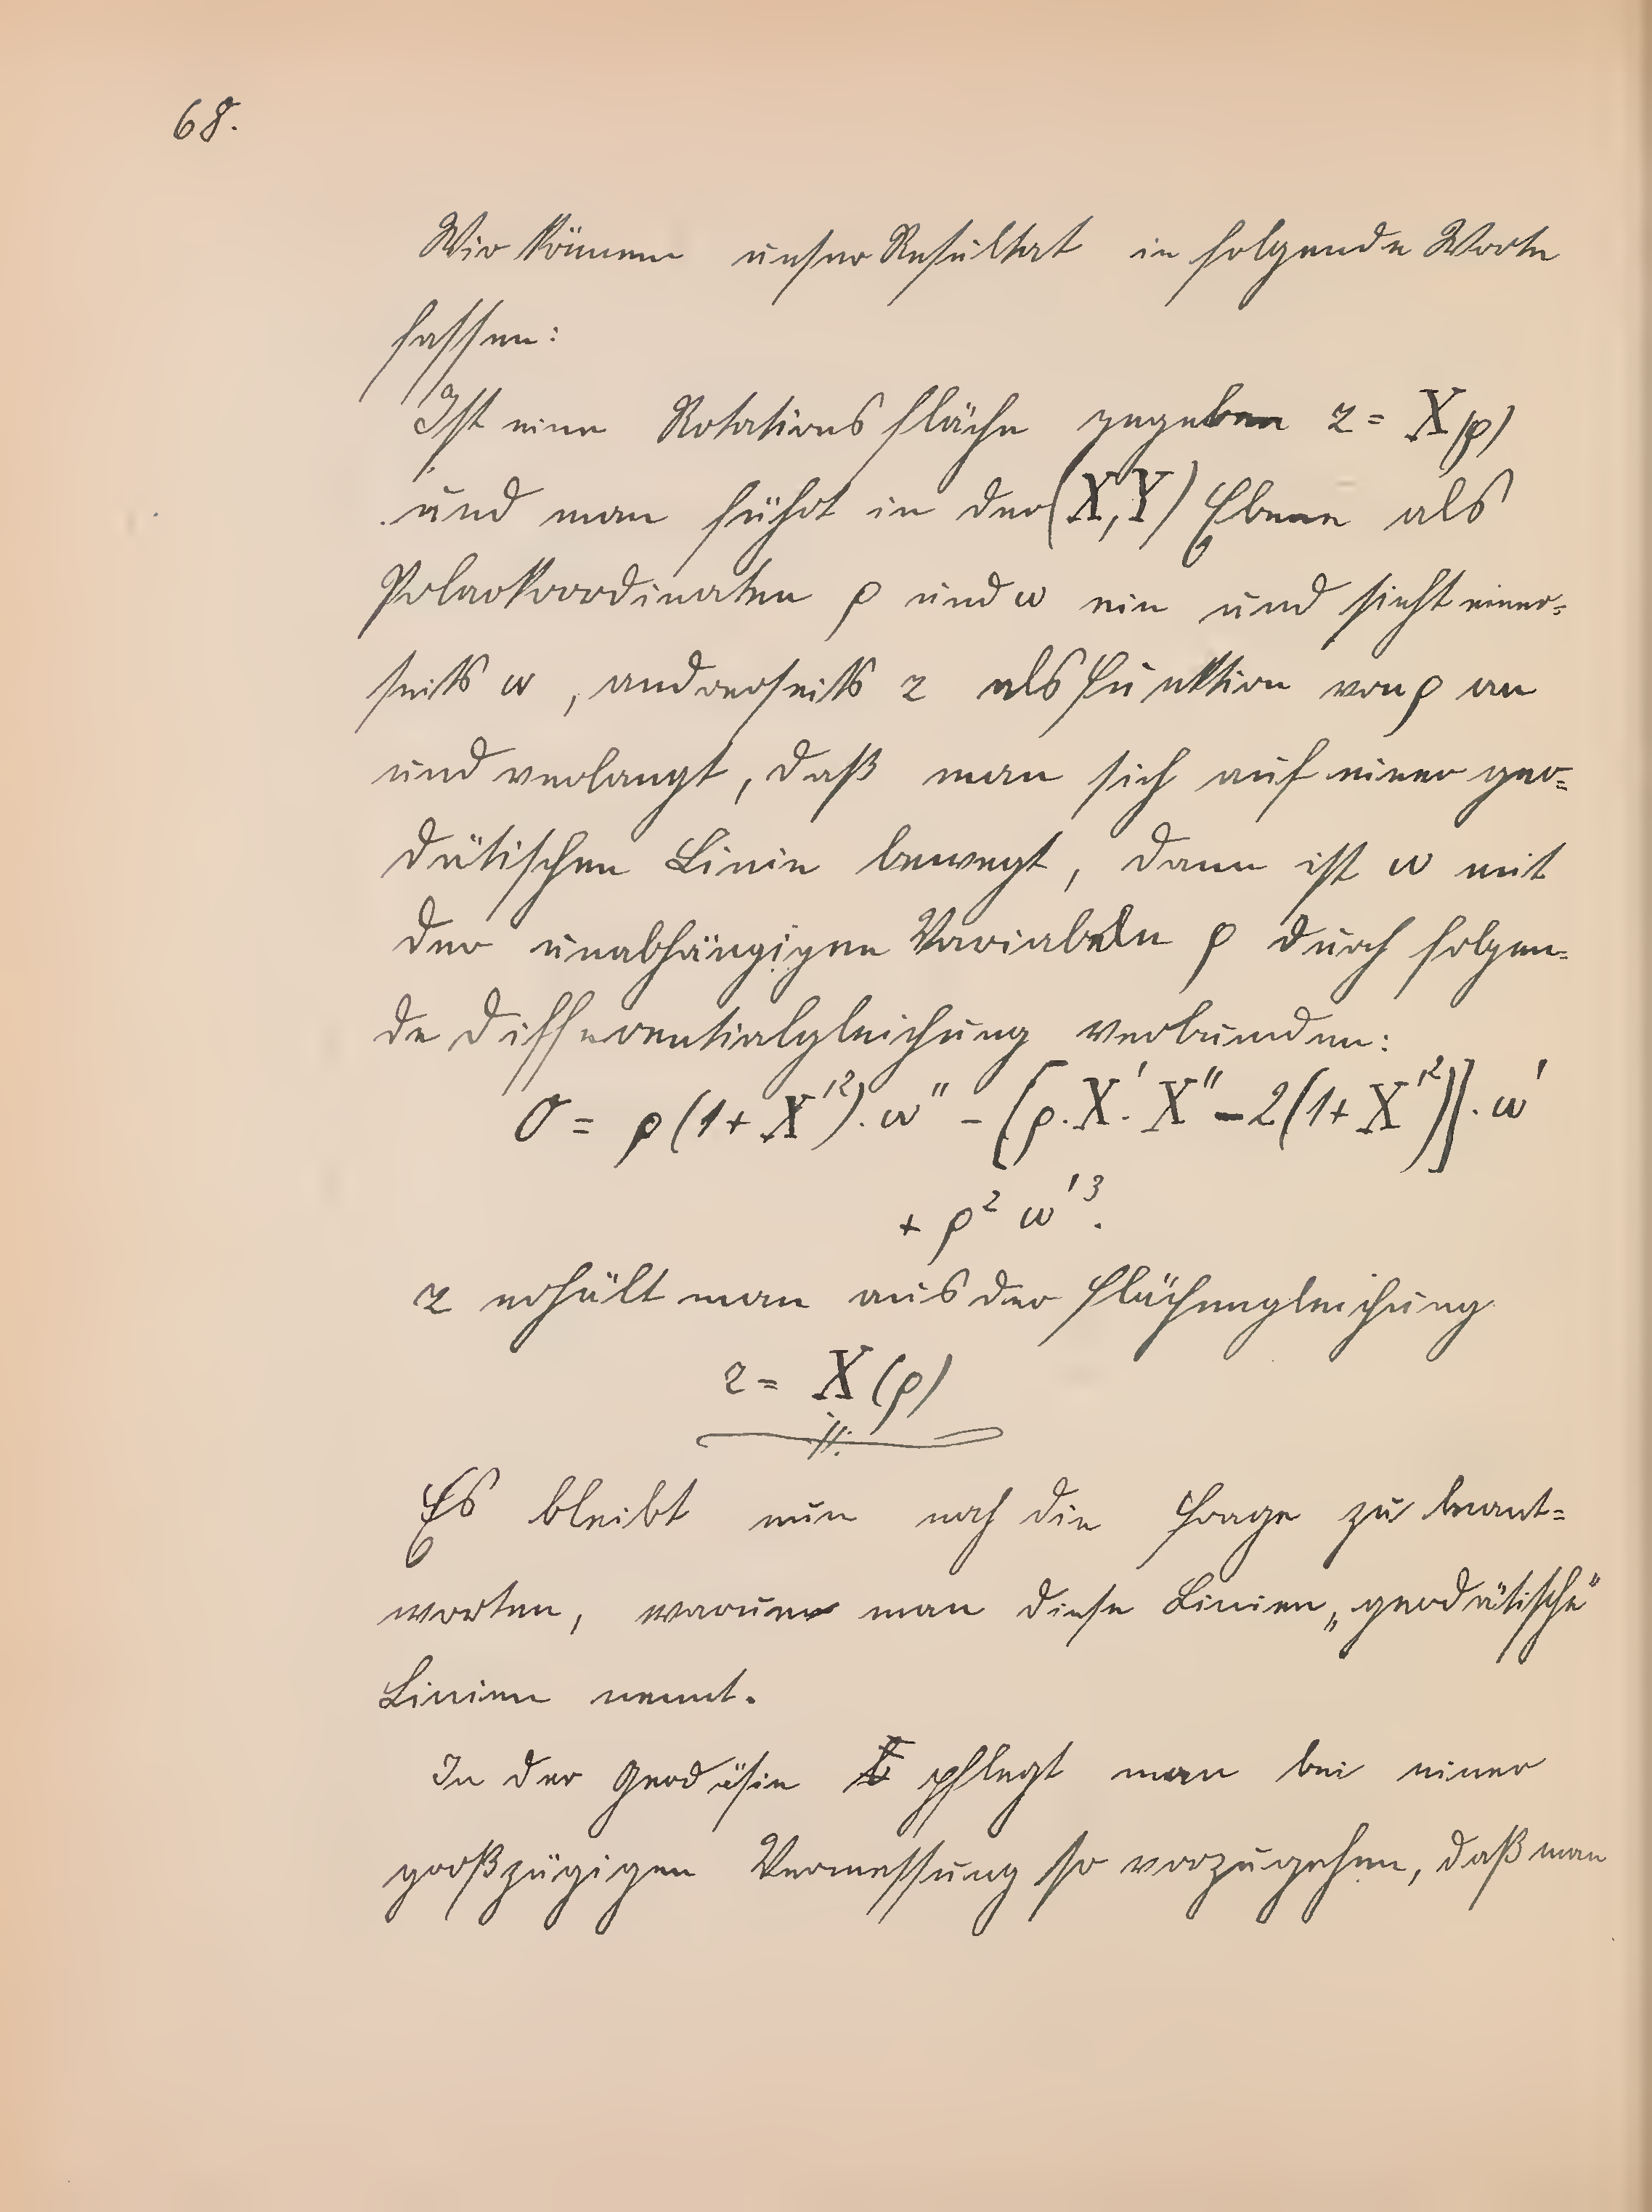 68.
Wir können unser Resultat in folgende Worte
fassen:
Ist eine Rotationsfläche gegeben z = X(ρ)
und man führt in der (X,Y) Ebene als
Polarkoordinaten ρ und ω ein und sieht einer=
seits ω, andrerseits z als Funktion von ρ an
und verlangt, daß man sich auf einer geo=
dätischen Linie bewegt, dann ist ω mit
der unabhängigen Variabeln ρ durch folgen=
de Differentialgleichung verbunden:
0 = ρ(1+X'²)·ω'' - [ρ·X'·X'' - 2(1+X'²)]·ω'
+ ρ² ω'³.
z erhält man aus der Flächengleichung
z = X(ρ)
Es bleibt nun noch die Frage zu beant=
worten, warum man diese Linien „geodätische"
Linien nennt.
In der Geodäsie pflegt man bei einer
großzügigen Vermessung so vorzugehen, daß man